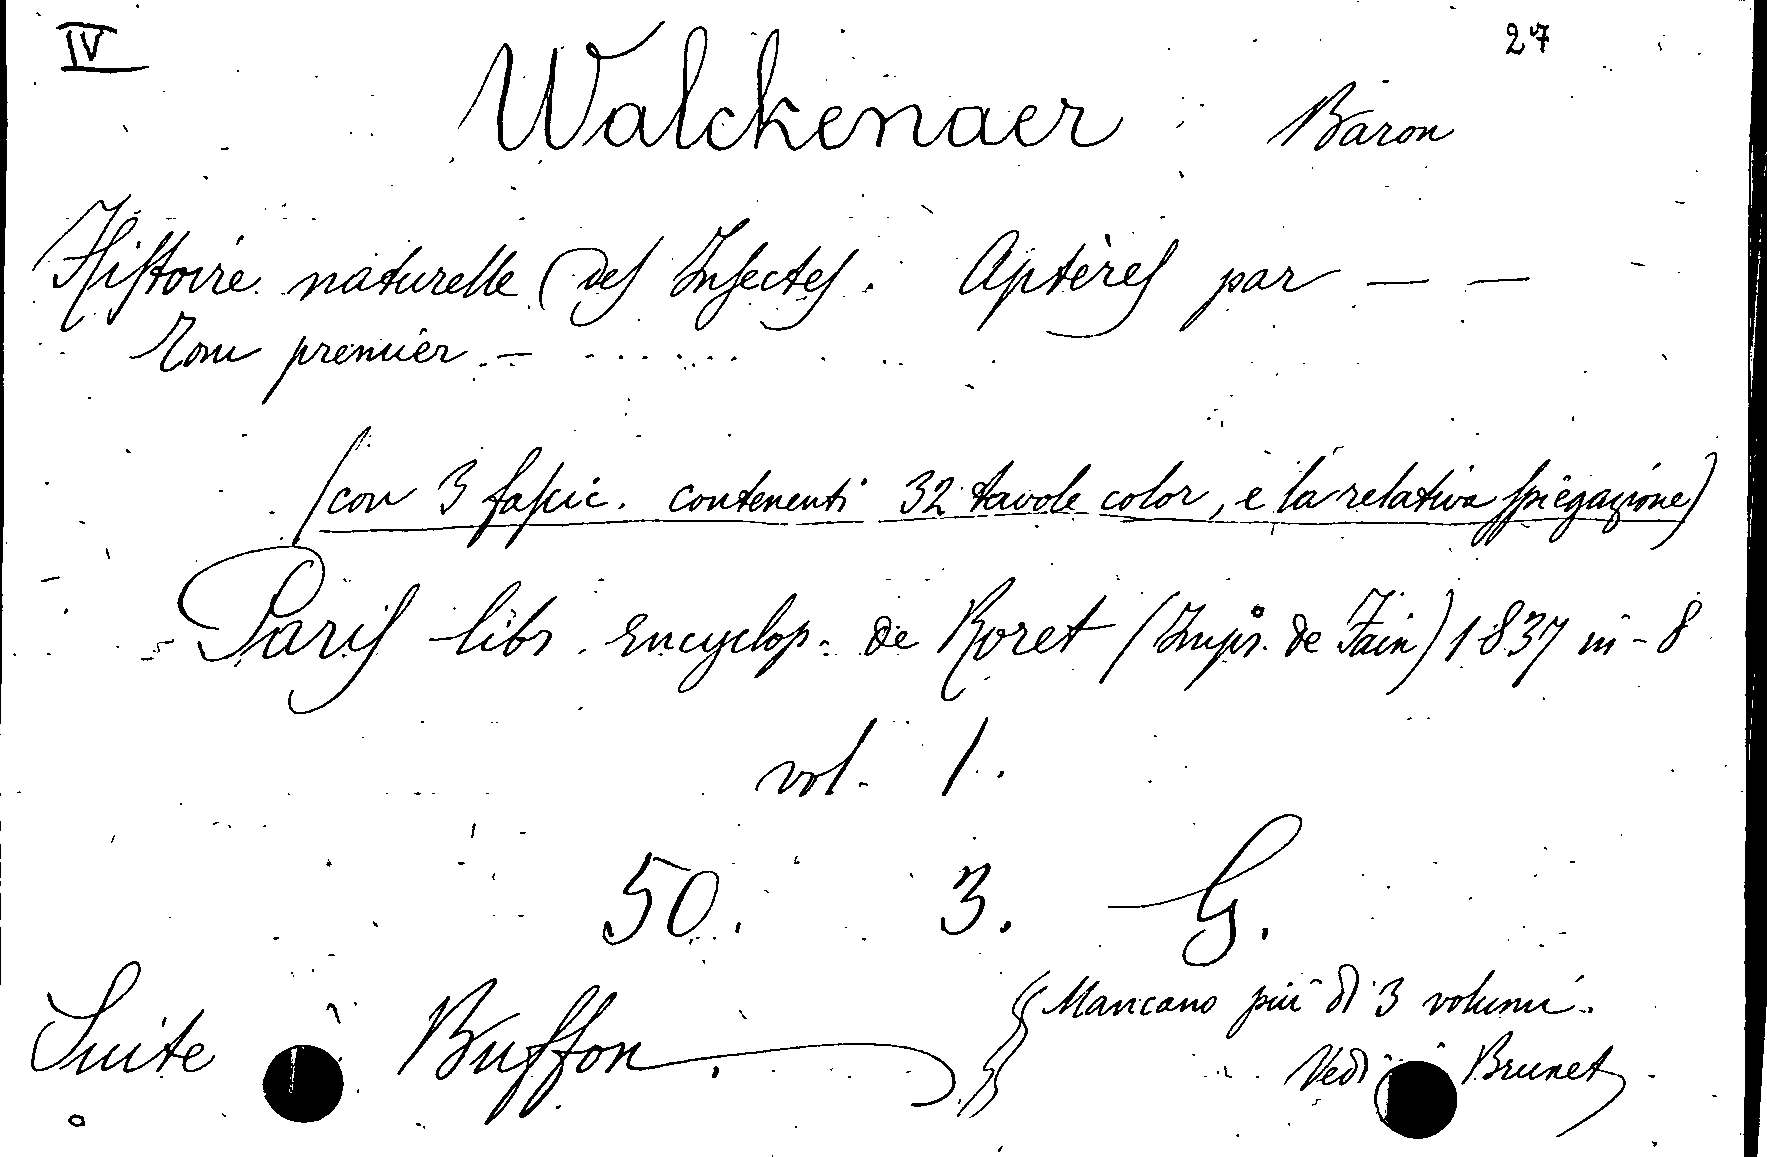 IV 27
Walckenaer Baron
Histoire naturelle des Insectes. Aptères par — —
Tom premier. —
(con 3 fascic. contenenti 32 tavole color, e la relativa spiegazione)
Paris libr. encyclop. de Roret (Impr. de Fain) 1837 in-8
vol. 1.
50. 3. G.
Suite à Buffon.
Mancano più di 3 volumi.
Vedi Brunet